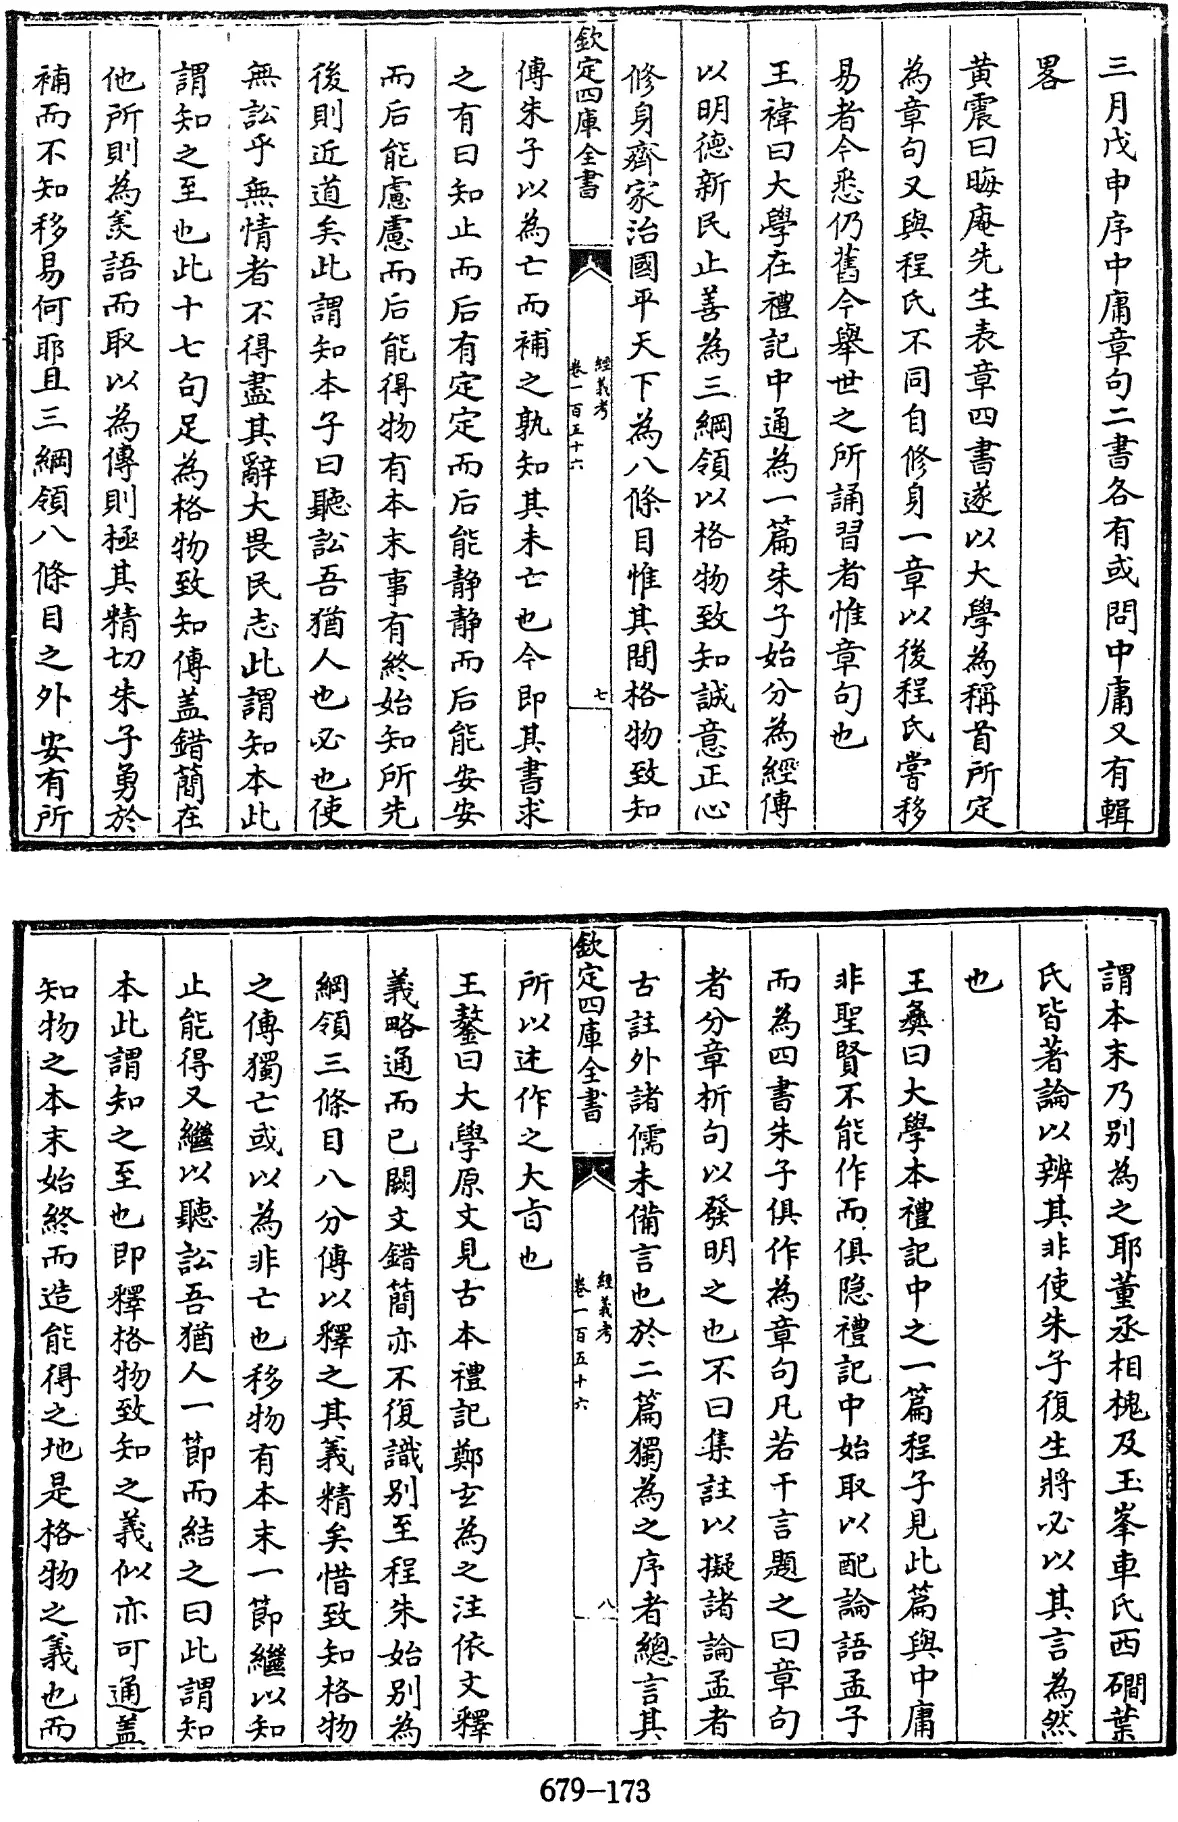 三月戊申序中庸章句二書各有或問中庸又有輯
畧
黄震曰晦庵先生表章四書遂以大學為稱首所定
為章句又與程氏不同自修身一章以後程氏嘗移
易者今悉仍舊今舉世之所誦習者惟章句也
王禕曰大學在禮記中通為一篇朱子始分為經傳
以明德新民止善為三綱領以格物致知誠意正心
修身齊家治國平天下為八條目惟其間格物致知
欽定四庫全書
經義考
卷一百五十六
七
傳朱子以為亡而補之孰知其未亡也今即其書求
之有曰知止而后有定定而后能静静而后能安安
而后能慮慮而后能得物有本末事有終始知所先
後則近道矣此謂知本子曰聽訟吾猶人也必也使
無訟乎無情者不得盡其辭大畏民志此謂知本此
謂知之至也此十七句足為格物致知傳盖錯簡在
他所則為羨語而取以為傳則極其精切朱子勇於
補而不知移易何耶且三綱領八條目之外安有所
謂本末乃別為之耶董丞相槐及玉峯車氏西磵葉
氏皆著論以辨其非使朱子復生將必以其言為然
也
王彝曰大學本禮記中之一篇程子見此篇與中庸
非聖賢不能作而俱隐禮記中始取以配論語孟子
而為四書朱子俱作為章句凡若干言題之曰章句
者分章析句以發明之也不曰集註以擬諸論孟者
古註外諸儒未備言也於二篇獨為之序者總言其
欽定四庫全書
經義考
卷一百五十六
八
所以述作之大旨也
王鏊曰大學原文見古本禮記鄭玄為之注依文釋
義略通而已闕文錯簡亦不復識別至程朱始別為
綱領三條目八分傳以釋之其義精矣惜致知格物
之傳獨亡或以為非亡也移物有本末一節繼以知
止能得又繼以聽訟吾猶人一節而結之曰此謂知
本此謂知之至也即釋格物致知之義似亦可通盖
知物之本末始終而造能得之地是格物之義也而
679-173